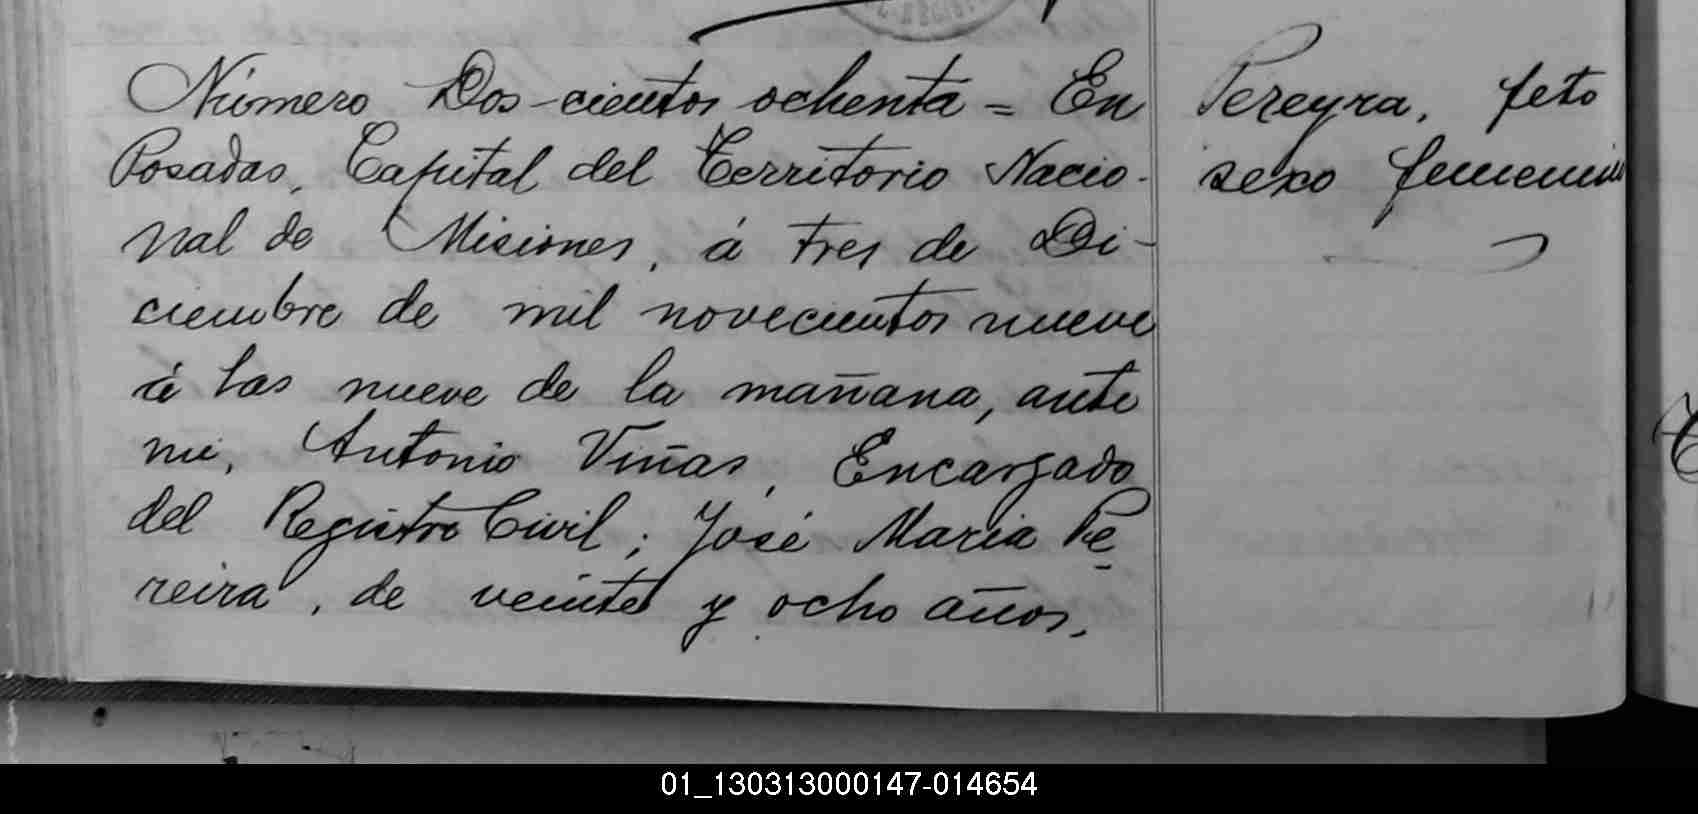 Número Dos-cientos ochenta = En
Posadas, Capital del Territorio Nacio-
nal de Misiones, á tres de Di-
ciembre de mil novecientos nueve
á las nueve de la mañana, ante
mi, Antonio Viñas, Encargado
del Registro Civil; José Maria Pe
reira, de veinte y ocho años,
Pereyra, feto
sexo femenino
01_130313000147-014654